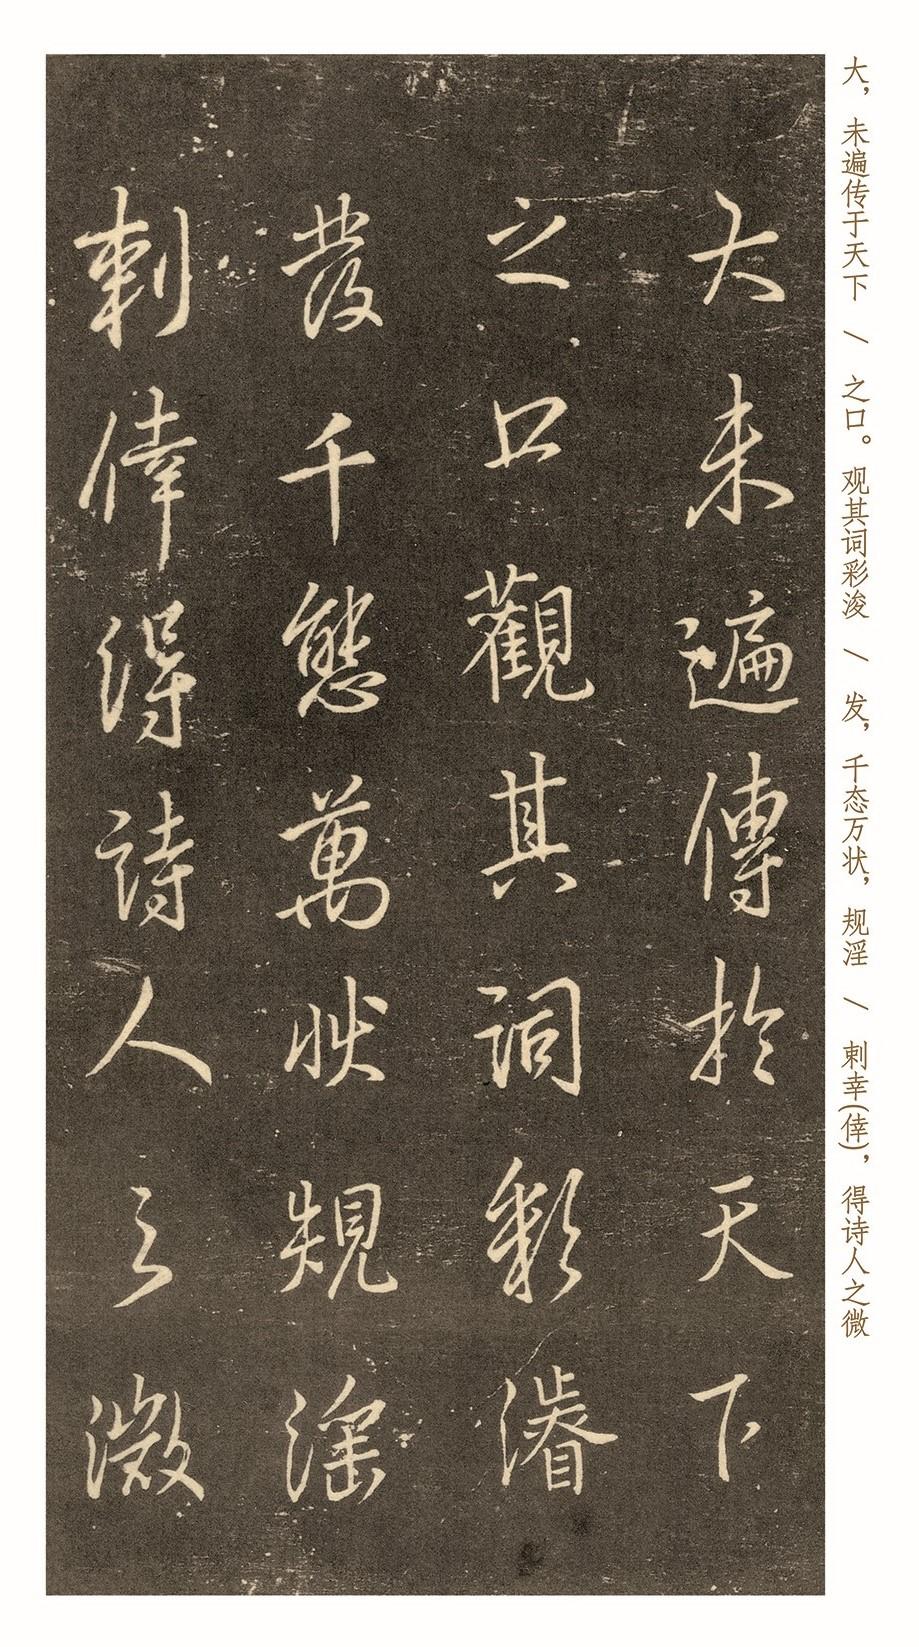 大未遍傳於天下
之口觀其詞彩濬
發千態萬狀規淫
剌倖得詩人之微
大，未遍传于天下 / 之口。观其词彩浚 / 发，千态万状，规淫 / 剌幸(倖)，得诗人之微